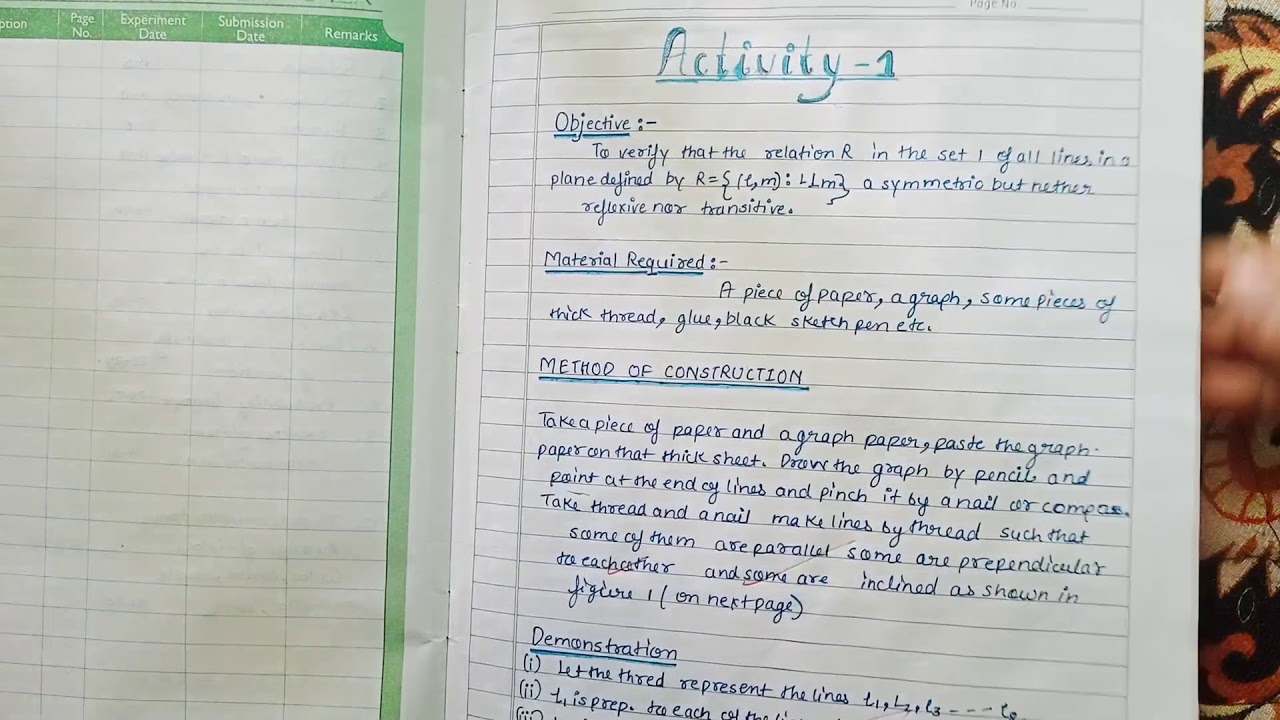 Page No.
ption Page No. Experiment Date Submission Date Remarks
Activity - 1
Objective :-
To verify that the relation R in the set l of all lines in a
plane defined by R={(l,m): l⊥m} a symmetric but nether
reflexive nor transitive.
Material Required :-
A piece of paper, a graph, some pieces of
thick thread, glue, black sketch pen etc.
METHOD OF CONSTRUCTION
Take a piece of paper and a graph paper, paste the graph
paper on that thick sheet. Draw the graph by pencil and
point at the end of lines and pinch it by a nail or compas.
Take thread and a nail make lines by thread such that
some of them are parallel some are prependicular
to each other and some are inclined as shown in
figure 1 (on next page)
Demonstration
(i) Let the thred represent the lines l1, l2, l3 ----
(ii) l1 is prep. to each of the